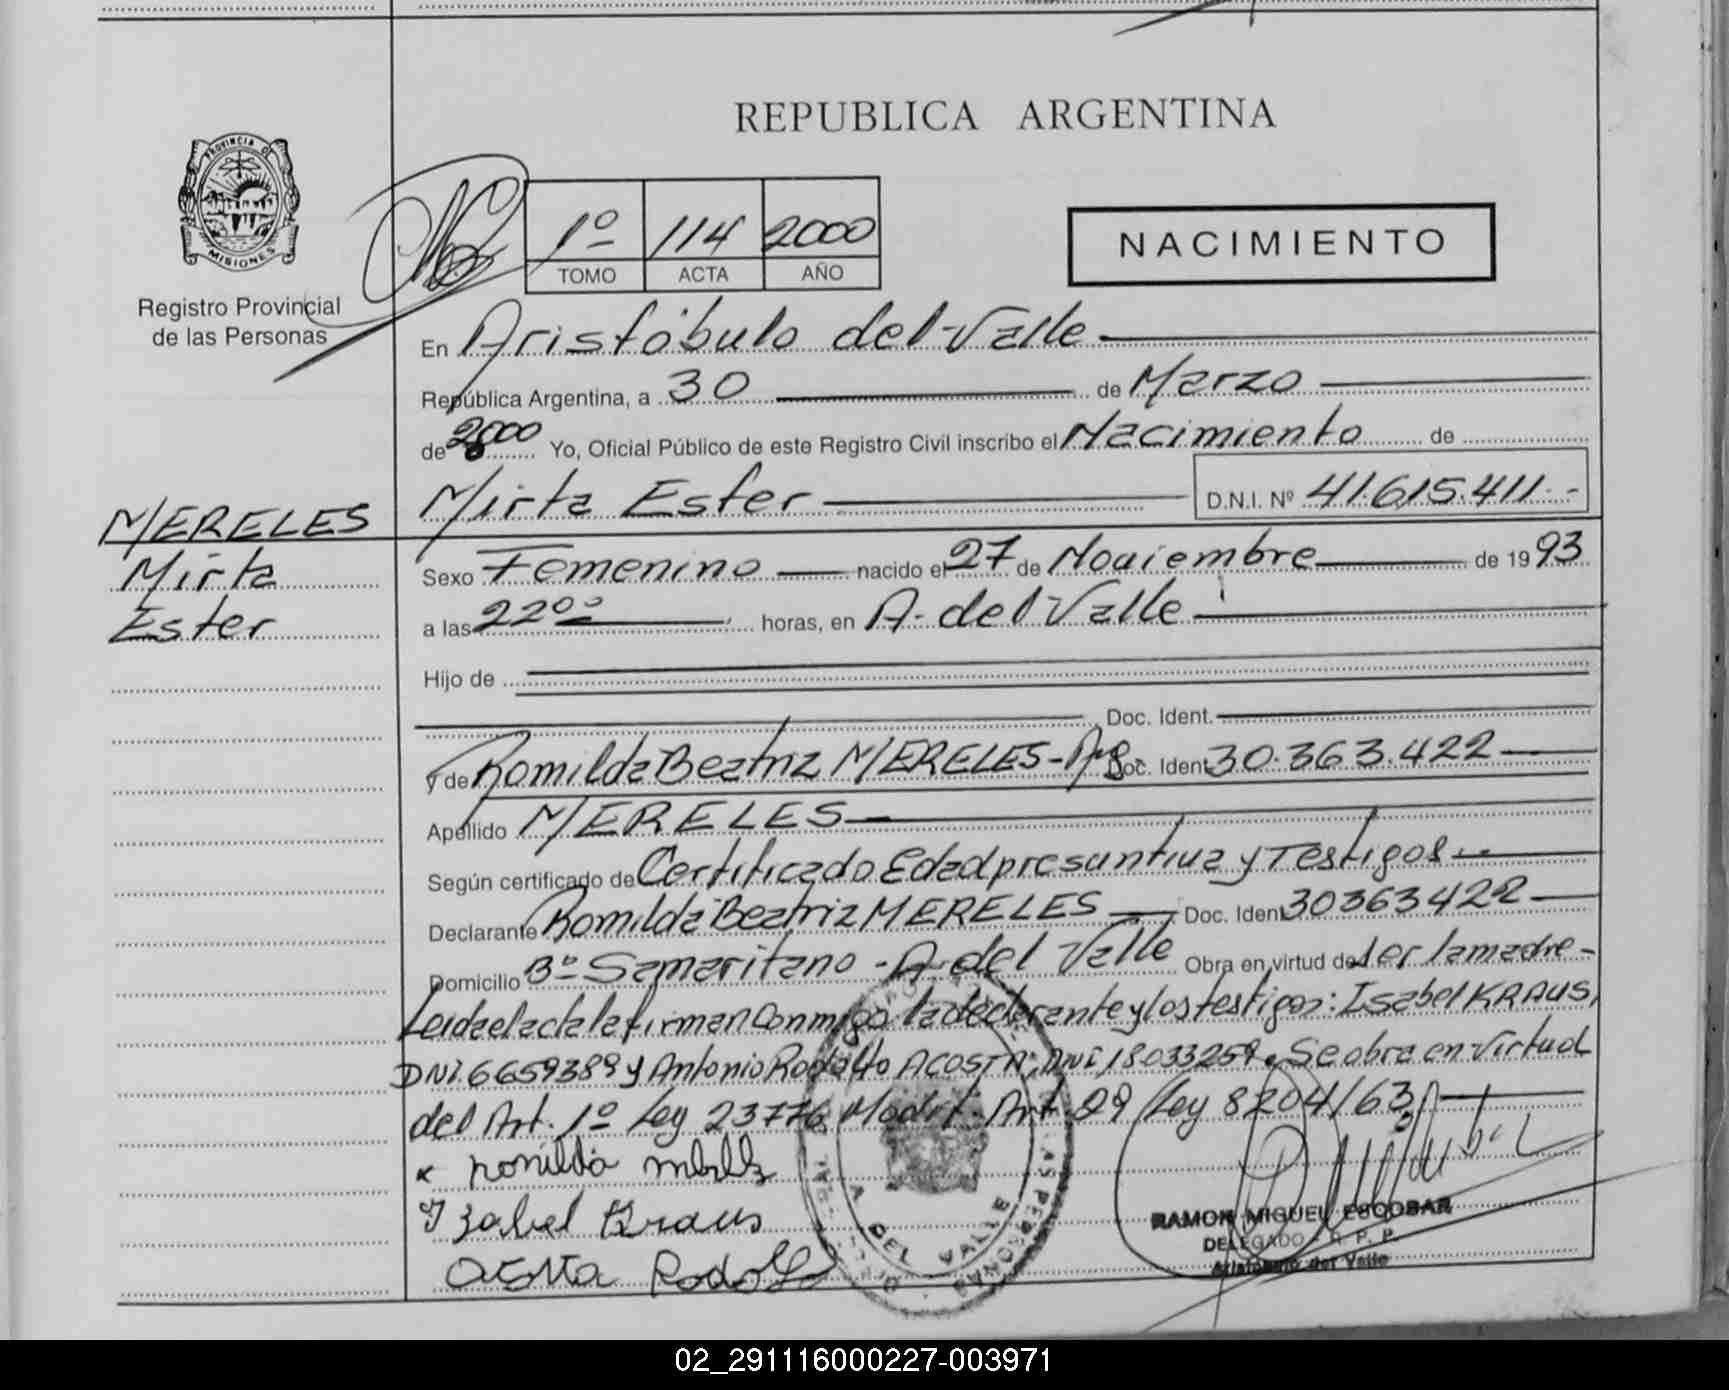 REPUBLICA ARGENTINA
PROVINCIA DE
MISIONES
Registro Provincial
de las Personas
1º 114 2000
TOMO ACTA AÑO
NACIMIENTO
En Aristóbulo del Valle
República Argentina, a 30 de Marzo
de 2000 Yo, Oficial Público de este Registro Civil inscribo el Nacimiento de
Mirta Ester D.N.I. Nº 41.615.411.-
MERELES
Mirta
Ester
Sexo Femenino nacido el 27 de Noviembre de 1993
a las 22ºº horas, en A. del Valle
Hijo de
Doc. Ident.
y de Romilda Beatriz MERELES - Arg. Doc. Ident 30.363.422
Apellido MERELES
Según certificado de Certificado Edad presuntiva y Testigos
Declarante Romilda Beatriz MERELES Doc. Ident 30363422
Domicilio Bº Samaritano - A. del Valle Obra en virtud de Ser la madre -
Leida el acta la firman conmigo la declarante y los testigos: Isabel KRAUS,
DNI 6659389 y Antonio Rodolfo ACOSTA, DNI 18033259. Se obra en Virtud
del Art. 1º Ley 23776 Modif. Art 29 Ley 8204/63
x romilda
Yzabel Kraus
acosta Rodolfo
A. DEL VALLE
RAMON MIGUEL ESCOBAR
DELEGADO - R. P. P.
Aristobulo del Valle
02_291116000227-003971